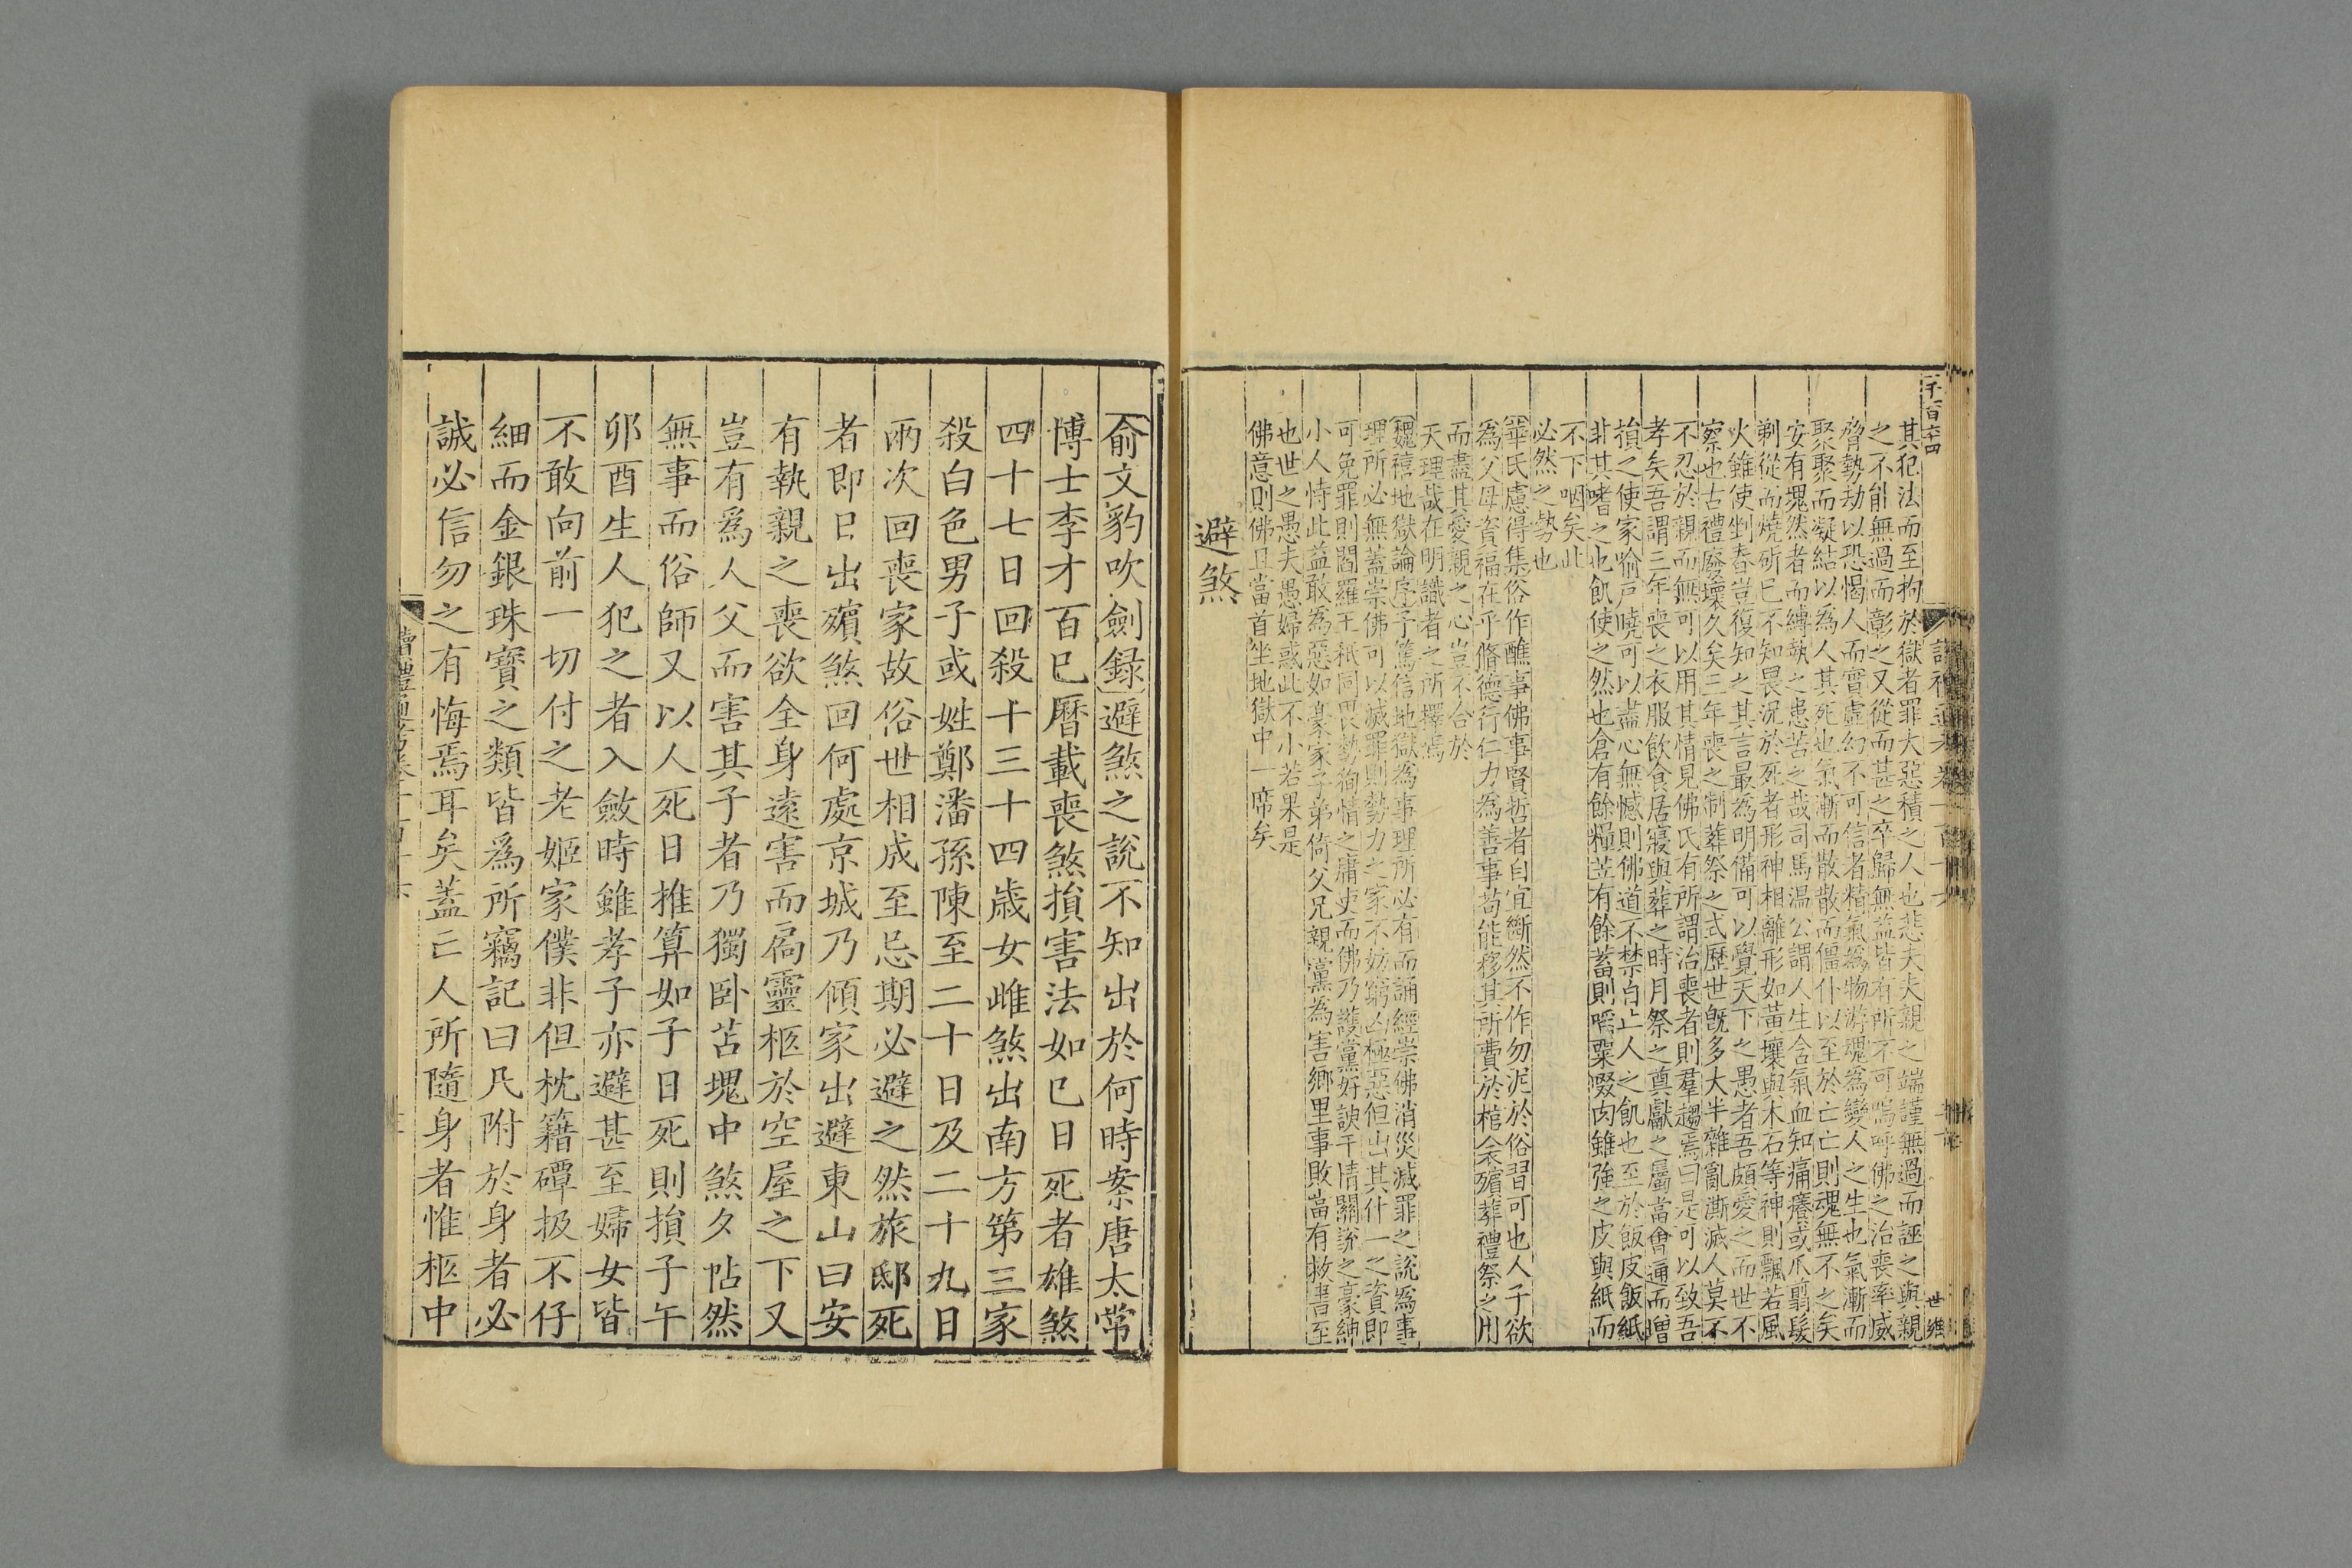 千一百六四
其犯法而至拘於獄者罪大惡積之人也悲夫夫親之端謹無過而誣之與親
之不能無過而彰之又從而甚之卒歸無益皆有所不可嗚呼佛之治喪率威
脅勢劫以恐愒人而實虛幻不可信者精氣為物游魂為變人之生也氣漸而
聚聚而凝結以為人其死也氣漸而散散而僵仆以至於亡亡則魂無不之矣
安有塊然者而縛執之患苦之哉司馬溫公謂人生含氣血知痛癢或爪翦髮
剃從而燒斫已不知畏況於死者形神相離形如黃壤與木石等神則飄若風
火雖使剉舂豈復知之其言最為明備可以覺天下之愚者吾頗愛之而世不
察也古禮廢壞久矣三年喪之制葬祭之式歷世旣多大半雜亂澌滅人莫不
不忍於親而無可以用其情見佛氏有所謂治喪者則羣趨焉曰是可以致吾
孝矣吾謂三年喪之衣服飲食居寢與葬之時月祭之奠獻之屬當會通而增
損之使家喻戶曉可以盡心無憾則佛道不禁自止人之飢也至於飯皮飯紙
非其嗜之也飢使之然也倉有餘糧苙有餘蓄則啜粟啜肉雖強之皮與紙而
不下咽矣此
必然之勢也
華氏慮得集俗作醮事佛事賢哲者自宜斷然不作勿泥於俗習可也人子欲
為父母資福在乎脩德行仁力為善事茍能移其所費於棺衾殯葬禮祭之用
而盡其愛親之心豈不合於
天理哉在明識者之所擇焉
魏禧地獄論序予篤信地獄為事理所必有而誦經崇佛消災滅罪之說為事
理所必無蓋崇佛可以滅罪則勢力之家不妨窮凶極惡但出其什一之資即
可免罪則閻羅王秪同畏勢徇情之庸吏而佛乃護黨好諛干情關說之豪紳
小人恃此益敢為惡如豪家子弟倚父兄親黨為害鄉里事敗當有救書至
也世之愚夫愚婦惑此不小若果是
佛意則佛且當首坐地獄中一席矣
避煞
俞文豹吹劍録避煞之說不知出於何時案唐太常
博士李才百已曆載喪煞損害法如已日死者雄煞
四十七日回殺十三十四歲女雌煞出南方第三家
殺白色男子或姓鄭潘孫陳至二十日及二十九日
兩次回喪家故俗世相成至忌期必避之然旅邸死
者即日出殯煞回何處京城乃傾家出避東山曰安
有執親之喪欲全身遠害而扃靈柩於空屋之下又
豈有爲人父而害其子者乃獨卧苫塊中煞夕帖然
無事而俗師又以人死日推算如子日死則損子午
卯酉生人犯之者入斂時雖孝子亦避甚至婦女皆
不敢向前一切付之老嫗家僕非但枕籍磹扱不仔
細而金銀珠寶之類皆爲所竊記曰凡附於身者必
誠必信勿之有悔焉耳矣蓋亡人所隨身者惟柩中